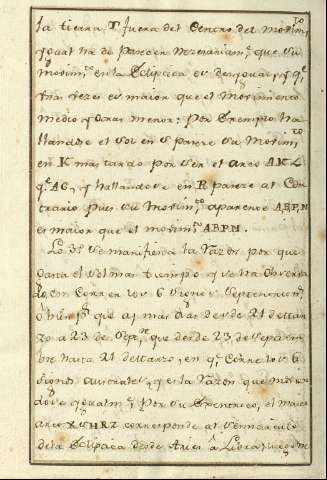 la tierra T fuera del Centro del movim.to
igual ha de parecer necesariam.te que su
movim.to en la Ecliptica es desigual, y q.e
unas vezes es maior que el movimiento
medio y otras menor: Por Exemplo ha
llandose el Sol en S parece su movim.to
en K mas tardo por ser el arco AK L
q.e AG, y hallandose en R parece al Con
trario pues su movim.to aparente AEPN
es maior que el movim.to ABPM.
Lo 3.º se manifiesta la razon por que
gasta el Sol mas tiempo y se ha observa
do, en Correr los 6 signos Septentrion.s
que ai mas dias desde 21 de Mar
zo a 23 de Sep.re que desde 23 de Septiem
bre hasta 21 de Marzo, en q.e Corre los 6
signos Australes, y es la razon que movien
dose igualm.te Por su Excentrico, el maior
arco XSHRZ corresponde al semicirculo
de la Ecliptica desde Aries a Libra,